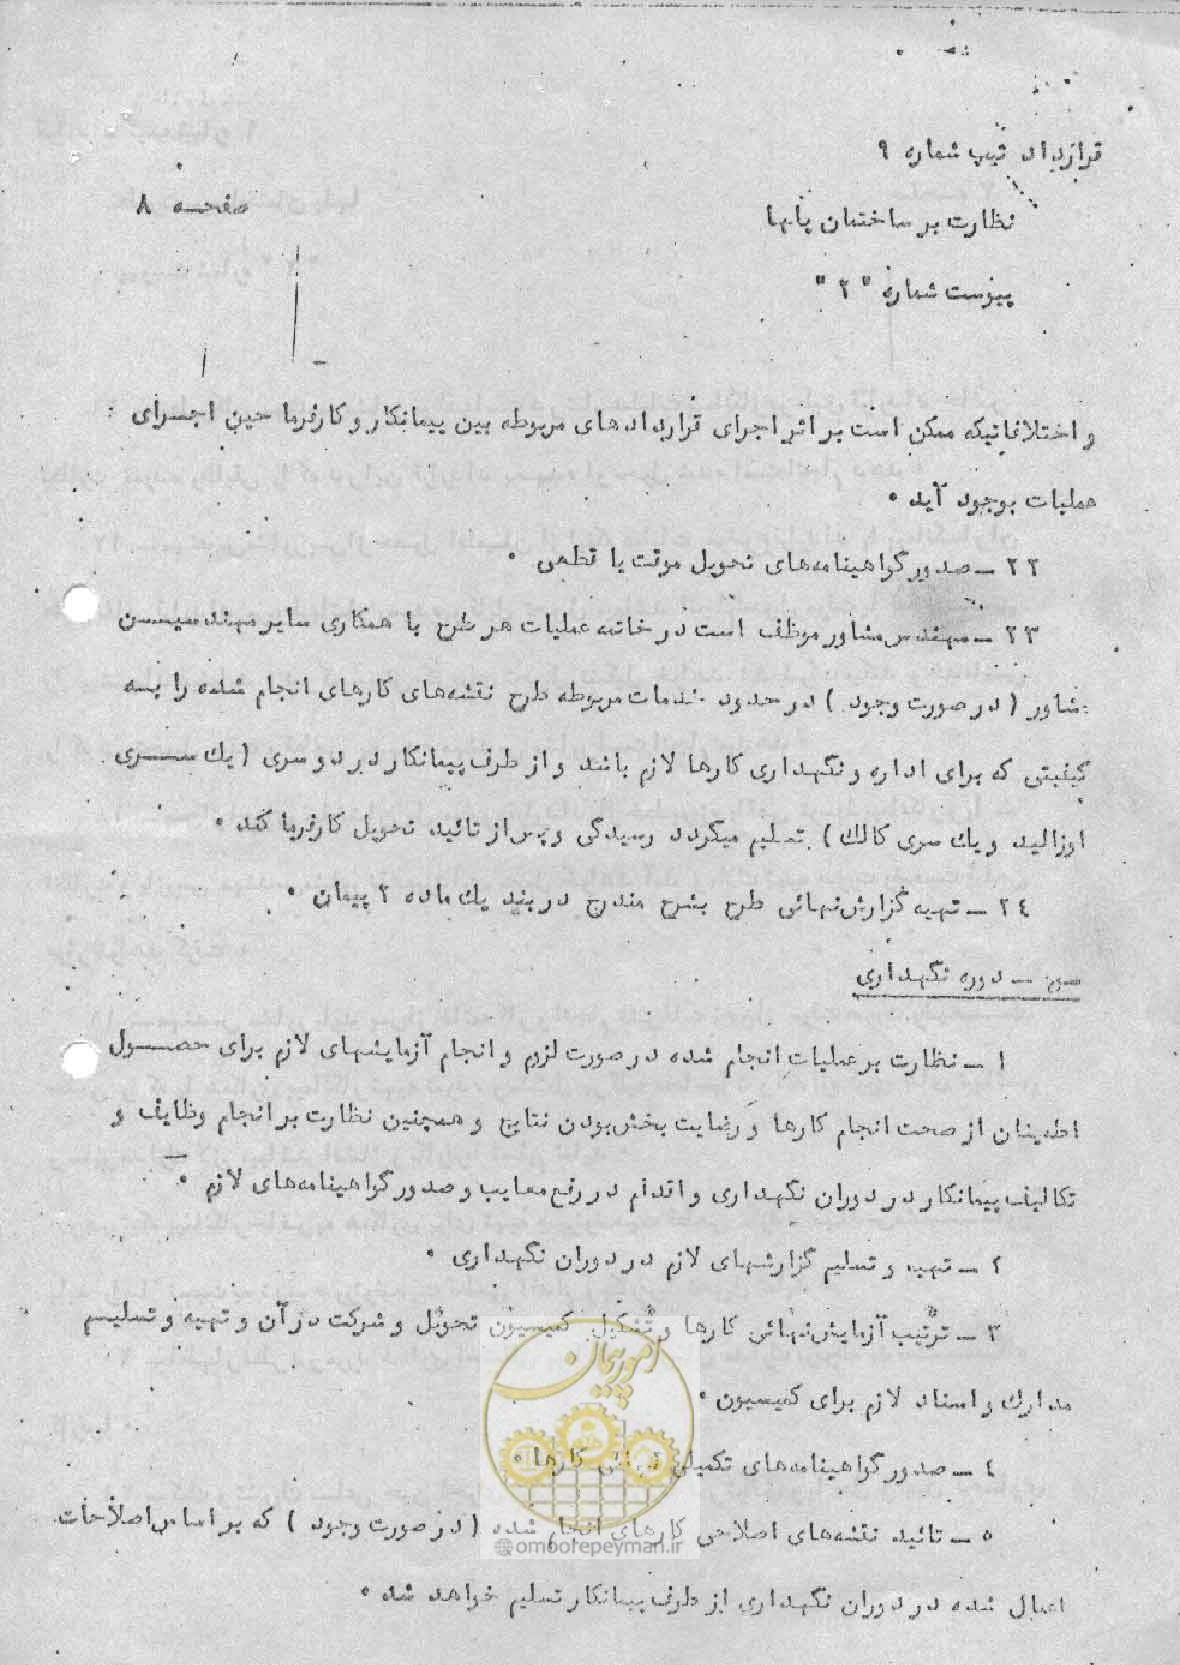 قرارداد تیپ شماره ۹
نظارت بر ساختمان پلها
صفحه ۸
پیوست شماره " ۲ "
و اختلافاتیکه ممکن است بر اثر اجرای قراردادهای مربوطه بین پیمانکار و کارفرما حین اجرای
عملیات بوجود آید .
۲۲ ــ صدور گواهینامه‌های تحویل موقت یا قطعی .
۲۳ ــ مهندس مشاور موظف است در خاتمه عملیات هر طرح با همکاری سایر مهندسیسن
مشاور ( در صورت وجود ) در حدود خدمات مربوطه طرح نقشه‌های کارهای انجام شده را بسه
کیفیتی که برای اداره و نگهداری کارها لازم باشد و از طرف پیمانکار در دو سری ( یك ســری
اوزالید و یك سری کالك ) تسلیم میگردد رسیدگی و پس از تائید تحویل کارفرما کند .
۲٤ ــ تهیه گزارش نهائی طرح بشرح مندرج در بند یك ماده ۲ پیمان .
سوم ــ دوره نگهداری
۱ ــ نظارت بر عملیات انجام شده در صورت لزوم و انجام آزمایشهای لازم برای حصــول
اطمینان از صحت انجام کارها و رضایت بخش بودن نتایج و همچنین نظارت بر انجام وظایف و
تکالیف پیمانکار در دوران نگهداری و اقدام در رفع معایب و صدور گواهینامه‌های لازم .
۲ ــ تهیه و تسلیم گزارشهای لازم در دوران نگهداری .
۳ ــ ترتیب آزمایش نهائی کارها و تشکیل کمیسیون تحویل و شرکت در آن و تهیه و تسلیسم
مدارك و اسناد لازم برای کمیسیون .
٤ ــ صدور گواهینامه‌های تکمیل نهائی کارها .
۵ ــ تائید نقشه‌های اصلاحی کارهای انجام شده ( در صورت وجود ) که بر اساس اصلاحات
اعمال شده در دوران نگهداری از طرف پیمانکار تسلیم خواهد شد .
امور پیمان
@omoorepeyman.ir